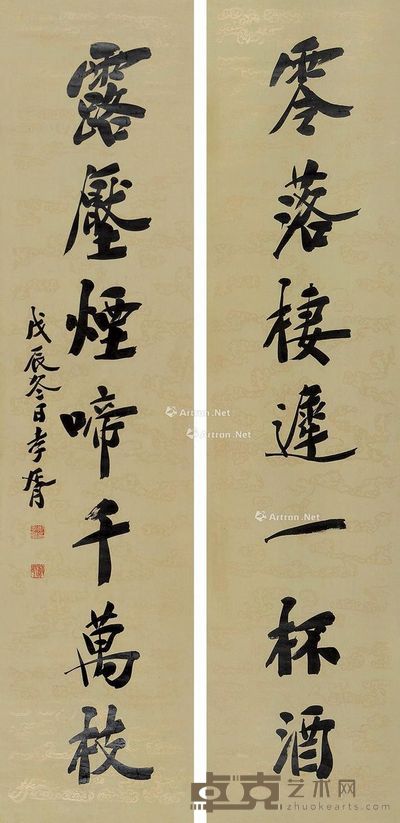 零落棲遲一杯酒
露壓煙啼千萬枝
戊辰冬日孝胥
Artron.Net
Artron.Net
Artron.Net
卓克艺术网
zhuokearts.com